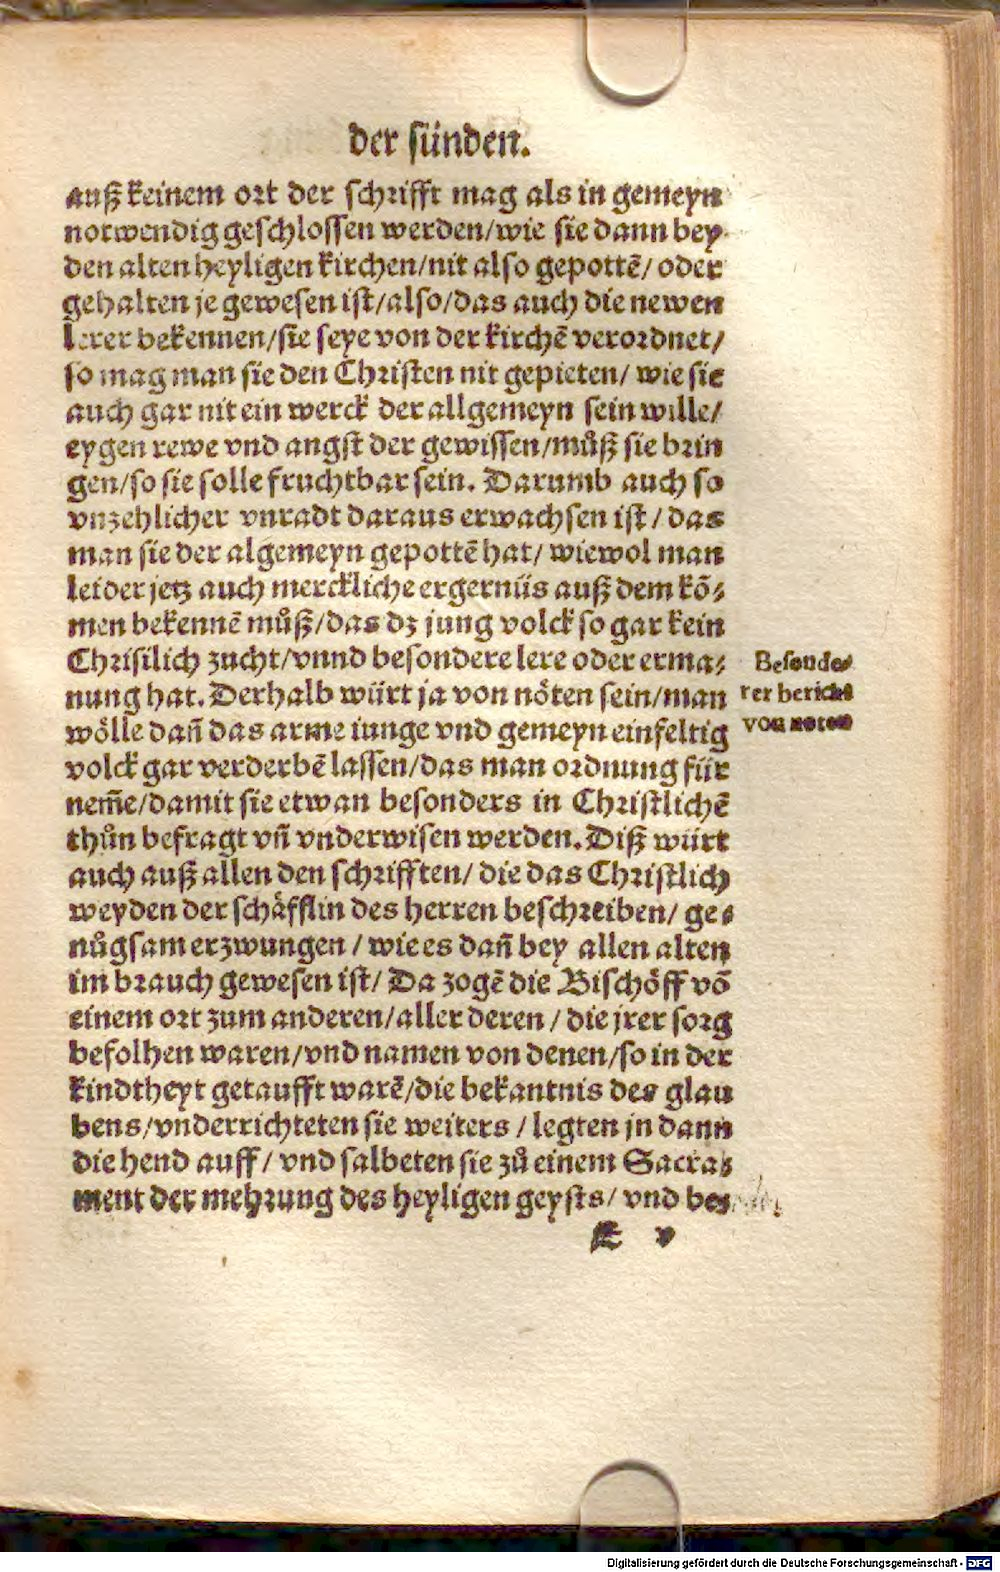 der sünden.
auß keinem ort der schrifft mag als in gemeyn
notwendig geschlossen werden/wie sie dann bey
den alten heyligen kirchen/nit also gepottē/ oder
gehalten je gewesen ist/also/das auch die newen
lerer bekennen/sie seye von der kirchē verordnet/
so mag man sie den Christen nit gepieten/ wie sie
auch gar nit ein werck der allgemeyn sein wille/
eygen rewe vnd angst der gewissen/můß sie brin
gen/so sie solle fruchtbar sein. Darumb auch so
vnzehlicher vnradt daraus erwachsen ist/ das
man sie der algemeyn gepottē hat/ wiewol man
leider jetz auch merckliche ergernüs auß dem kō⸗
men bekennē můß/das dz jung volck so gar kein
Chrisilich zucht/vnnd besondere lere oder erma⸗
nung hat. Derhalb würt ja von nöten sein/man
wölle dañ das arme iunge vnd gemeyn einfeltig
volck gar verderbē lassen/das man ordnung für
nem̄e/damit sie etwan besonders in Christlichē
thůn befragt vñ vnderwisen werden. Diß würt
auch auß allen den schrifften/ die das Christlich
weyden der schäfflin des herren beschreiben/ ge⸗
nůgsam erzwungen / wie es dañ bey allen alten
im brauch gewesen ist/ Da zogē die Bischöff vō
einem ort zum anderen/aller deren / die jrer sorg
befolhen waren/vnd namen von denen/so in der
kindtheyt getaufft warē/die bekantnis des glau
bens/vnderrichteten sie weiters / legten jn dann
die hend auff/ vnd salbeten sie zů einem Sacra⸗
ment der mehrung des heyligen geysts/ vnd be⸗
Besonde⸗
rer bericht
von noten
K v
Digitalisierung gefördert durch die Deutsche Forschungsgemeinschaft - DFG